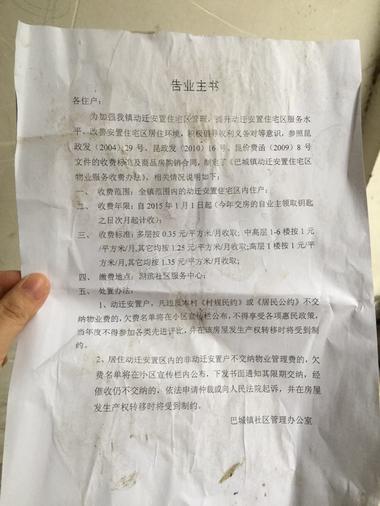 告业主书
各住户：
为加强我镇动迁安置住宅区管理，提升动迁安置住宅区服务水
平、改善安置住宅区居住环境，积极倡导权利义务对等意识，参照昆
政发（2004）29 号、昆政发（2010）16 号、昆价费函（2009）8 号
文件的收费标准及商品房购销合同，制定了《巴城镇动迁安置住宅区
物业服务收费办法》，相关情况说明如下：
一、 收费范围：全镇范围内的动迁安置住宅区内住户；
二、 收费年限：自 2015 年 1 月 1 日起（今年交房的自业主领取钥匙
之日次月起计收）；
三、 收费标准：多层按 0.35 元/平方米/月收取；中高层 1-6 楼按 1 元
/平方米/月,其它均按 1.25 元/平方米/月；高层 1 楼按 1 元/平方
米/月,其它均按 1.35 元/平方米/月收取；
四、 缴费地点：社区服务中心；
五、 处置办法：
1、动迁安置户，凡违反本村《村规民约》或《居民公约》不交
纳物业费的，欠费名单将在小区宣传栏内公布，不得享受各项惠民政策，
当年度不得参加各类先进评比，并在该房屋发生产权转移时将受到制
约。
2、居住动迁安置区内的非动迁安置户不交纳物业管理费的，欠
费名单将在小区宣传栏内公布，下发书面通知其限期交纳，经
催收仍不交纳的，依法申请仲裁或向人民法院起诉，并在房屋
发生产权转移时将受到制约。
巴城镇社区管理办公室